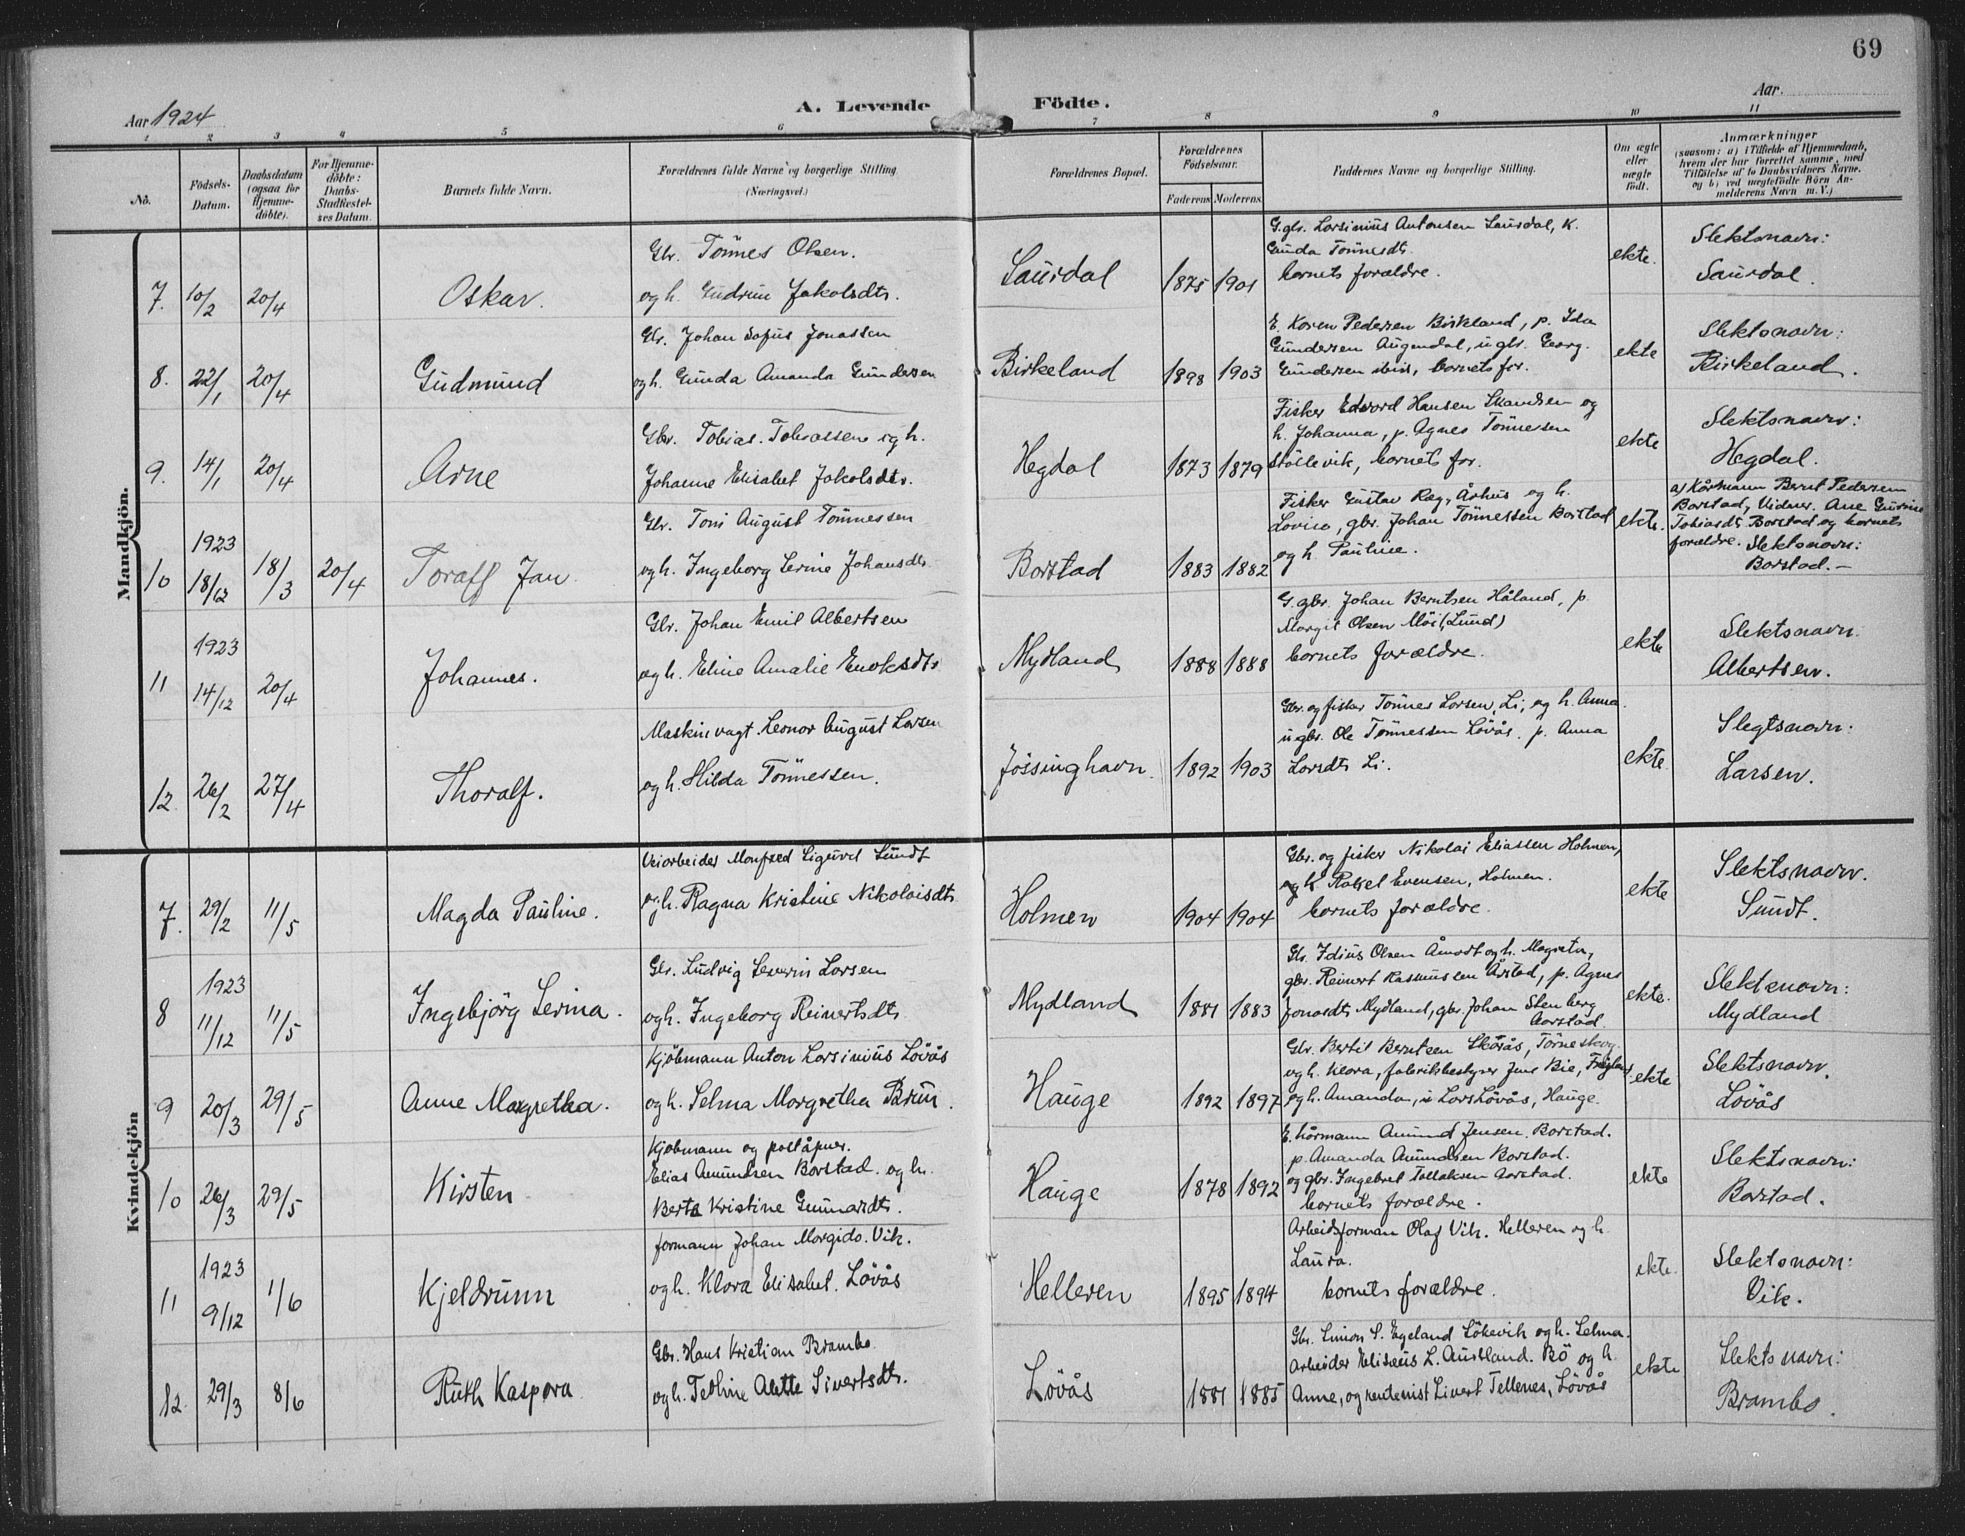 69
Aar 1924
A. Levende Födte.
Aar.
1 2 3 4 5 6 7 8 9 10 11
No.
Födsels-Datum.
Daabsdatum (ogsaa for Hjemmedöbte).
For Hjemmedöbte: Daabs-Stadfæstelses Datum.
Barnets fulde Navn.
Forældrenes fulde Navne og borgerlige Stilling (Næringsvei.)
Forældrenes Bopæl.
Forældrenes Födselsaar.
Faderens Moderens
Faddernes Navne og borgerlige Stilling.
Om ægte eller uægte födt.
Anmærkninger
(saasom: a) i Tilfælde af Hjemmedaab, hvem der har forrettet samme, med Tilföielse af to Daabsvidners Navne. og b) ved uægtefödte Börn Anmelderens Navn m. V.)
Mandkjön.
7. 10/2 20/4 Oskar.
Gbr. Tönnes Olsen.
og h. Gudrun Jakobsdtr.
Saurdal 1875 1901
G.gbr. Larsinius Antonsen Saurdal, K.
Gunda Tönnesdtr.
barnets forældre.
ekte.
Slektsnavn:
Saurdal.
8. 22/1 20/4 Gudmund
Gbr. Johan Sofus Jonassen
og h. Gunda Amanda Gundersen
Birkeland 1898 1903
E. Karen Pedersen Birkeland, p. Ida
Gundersen Augendal, u gbr. Georg.
Gundersen ibid, barnets for.
ekte
Slektsnavn:
Birkeland.
9. 14/1 20/4 Arne
Gbr. Tobias Tobiassen og h.
Johanne Elisabet Jakobsdtr.
Hegdal 1873 1879
Fisker Edvard Hansen Skandsen og
h. Johanna, p. Agnes Tönnesen
Stöllevik, barnets for.
ekte
Slektsnavn:
Hegdal.
10 1923 18/12 18/3 20/4 Toralf Jan
Gbr. Toni August Tönnessen
og h. Ingeborg Serine Johansdtr
Borstad 1883 1882
Fisker Gustav Reg, Århus og h.
Lovise, gbr. Johan Tönnessen Borstad
og h. Pauline.
ekte.
a) Kårmann Bernt Pedersen
Borstad, Vidner. Ane Gurine
Tobiasdtr Borstad og barnets
forældre. Slektsnavn:
Borstad.—
11 1923 14/12 20/4 Johannes.
Gbr. Johan Emil Albertsen
og h. Eline Amalie Enoksdtr
Mydland 1888 1888
G.gbr. Johan Berntsen Håland, p.
Margit Olsen Möi (Lund)
barnets forældre.
ekte
Slektsnavn:
Albertsen.
12 26/2 27/4 Thoralf.
Maskinvagt. Leonor August Larsen
og h. Hilda Tönnessen.
Jössinghavn. 1892 1903
Gbr. og fisker Tönnes Larsen, Li, og h. Anna.
u gbr. Ole Tönnessen Lövås. p. Anna
Larsdtr Li.
ekte.
Slegtsnavn:
Larsen.
Kvindekjön
7. 29/2 11/5 Magda Pauline.
Veiarbeider Manfred Sigurd Sundt
og h. Ragna Kristine Nikolaisdtr
Holmen 1904 1904
Gbr. og fisker Nikolai Eliassen Holmen,
og h. Rakel Evensen, Holmen.
barnets forældre.
ekte
Slektsnavn.
Sundt.
8 1923 11/12 11/5 Ingebjörg Serina.
Gbr. Ludvig Severin Larsen
og h. Ingeborg Reinertsdtr
Mydland 1881 1883
Gbr. Idius Olsen Åmodt og h. Magreta,
gbr. Reinert Rasmussen Årstad, p. Agnes
Jonasdtr Mydland, gbr. Johan Stenberg
Aarstad
ekte.
Slektsnavn:
Mydland
9 20/3 29/5 Anne Margretha.
Kjöbmann Anton Larsinius Lövås
og h. Selma Margretha Bruun.
Hauge 1892 1897
Gbr. Bertil Berntsen Skårås, Törneskog
og h. Klara, fabrikbestyrer Jens Bie,
og h. Amanda, u Lars Lövås, Hauge.
ekte
Slektsnavn.
Lövås
10 26/3 29/5 Kirsten
Kjöbmann og poståpner.
Elias Amundsen Borstad. og h.
Berta Kristine Gunnarsdtr.
Hauge 1878 1892
E. kårmann Amund Jensen. Borstad.
p. Amanda Amundsen Borstad.
og gbr. Ingebret Tollaksen Aarstad.
barnets forældre.
ekte
Slektsnavn:
Borstad.
11 1923 9/12 1/6 Kjeldrunn
formann Johan Margido. Vik.
og h. Klara Elisabet. Lövås
Helleren 1895 1894
Arbeidsforman Olaf Vik. Helleren og h.
Laura.
barnets forældre.
ekte.
Slektsnavn:
Vik.
12. 29/3 8/6 Ruth Kaspara
Gbr. Hans Kristian Brambo
og h. Teoline Alette Sivertsdtr.
Lövås 1881 1885
Gbr. Simon S. Egeland Sökevik og h. Selma.
Arbeider Eliseus L. Austland. Bö og h.
Anne, og rentenist Sivert Tellenes, Lövås
ekte
Slektsnavn:
Brambo.